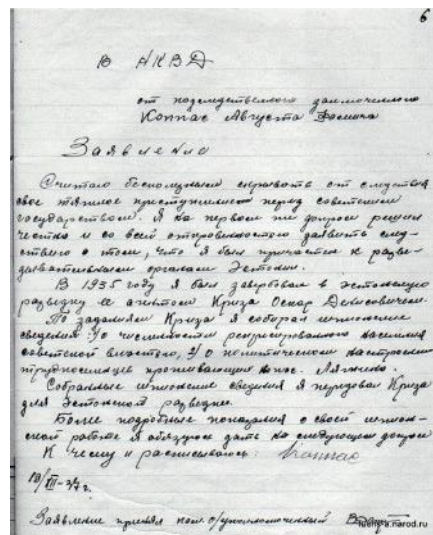 6
В НКВД
от подследственного заключенного
Коппас Августа
Заявление
Считаю бесполезным скрывать от следствия
свое тяжкое преступление перед советским
государством. Я на первом же допросе решил
честно и со всей откровенностью заявить след-
ствию о том, что я был причастен к разве-
дывательным органам Эстонии.
В 1935 году я был завербован в эстонскую
разведку ее агентом Криза Оскар
По заданиям Криза я собирал шпионские
сведения: 1/ о численности репрессированного населения
советской властью, 2/ о политическом настроении
трудпоселенцев проживающих в пос.
Собранные шпионские сведения я передавал Криза
для Эстонской разведки.
Более подробные показания о своей шпион-
ской работе я обязуюсь дать на следующем допросе
К чему и расписываюсь: Коппас
/III-37 г.
Заявление принял пом. о/уполномоченный
narod.ru